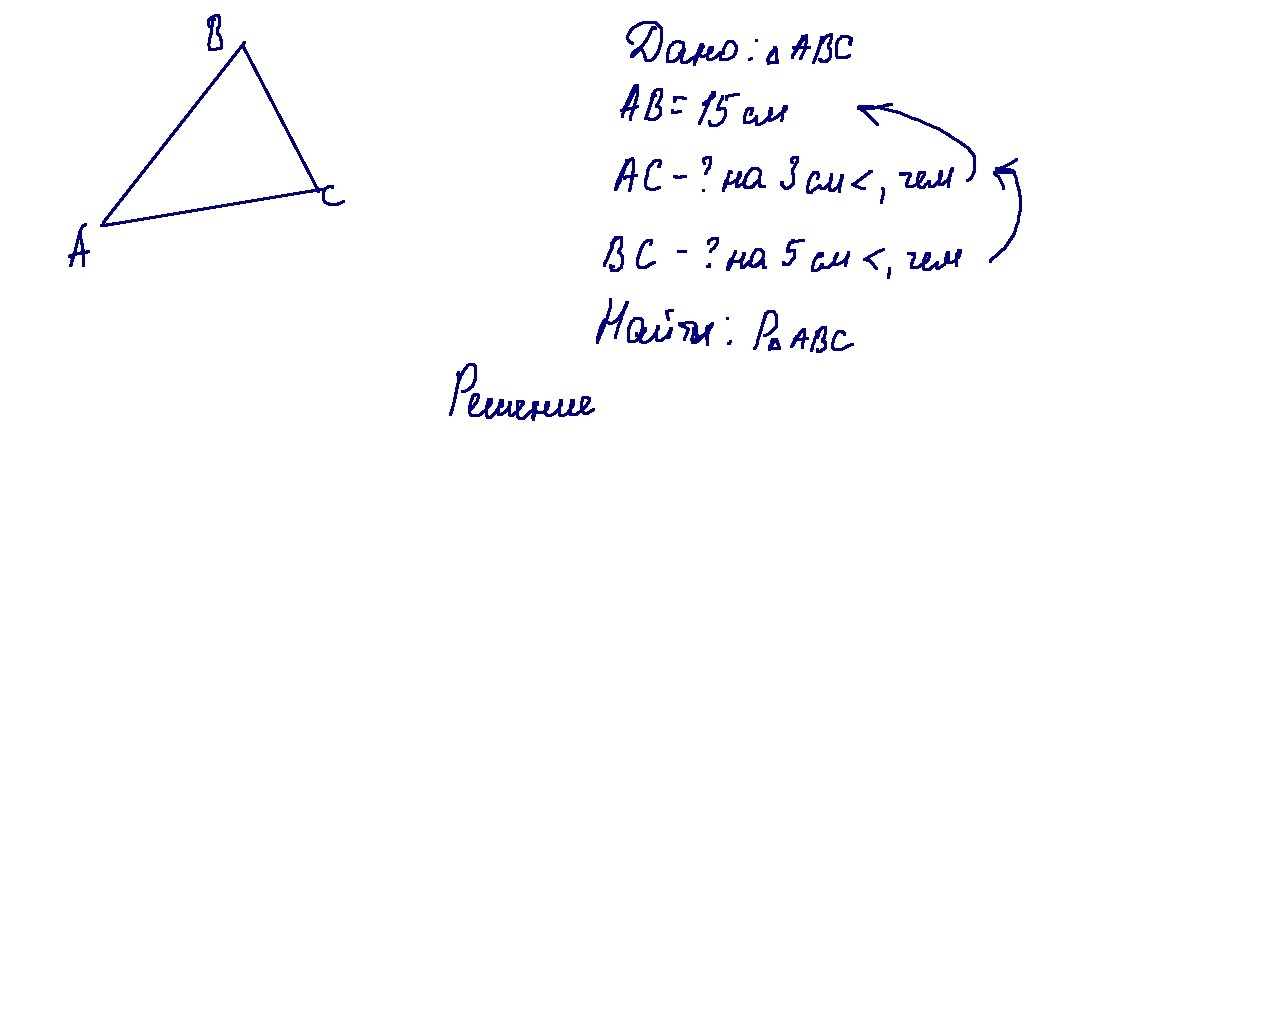 B
C
A
Дано: △ABC
AB = 15 см
AC - ? на 3 см <, чем
BC - ? на 5 см <, чем
Найти: P△ABC
Решение